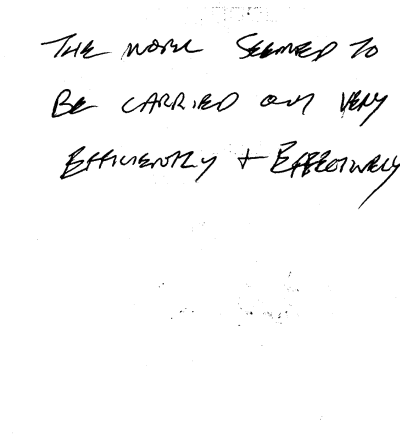 THE WORK SEEMED TO
BE CARRIED OUT VERY
EFFICIENTLY + EFFECTIVELY